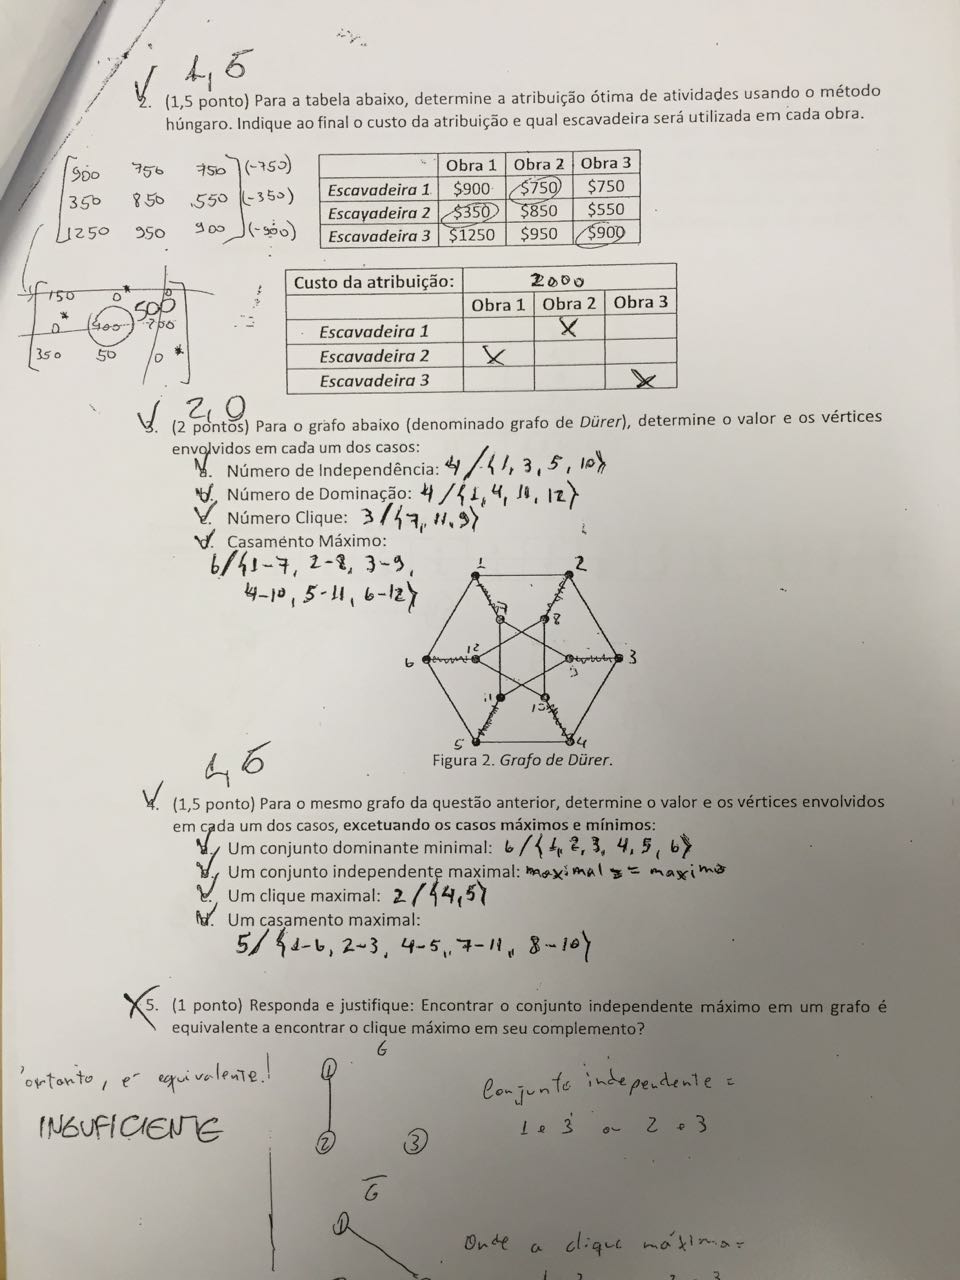 1,5
2. (1,5 ponto) Para a tabela abaixo, determine a atribuição ótima de atividades usando o método
húngaro. Indique ao final o custo da atribuição e qual escavadeira será utilizada em cada obra.
900 750 750 (-750)
350 850 550 (-350)
1250 950 900 (-900)
Obra 1 Obra 2 Obra 3
Escavadeira 1 $900 $750 $750
Escavadeira 2 $350 $850 $550
Escavadeira 3 $1250 $950 $900
150 0* 0
0* 500 200
350 50 0*
Custo da atribuição: 2000
Obra 1 Obra 2 Obra 3
Escavadeira 1 X
Escavadeira 2 X
Escavadeira 3 X
2,0
3. (2 pontos) Para o grafo abaixo (denominado grafo de Dürer), determine o valor e os vértices
envolvidos em cada um dos casos:
Número de Independência: 4/{1, 3, 5, 10}
Número de Dominação: 4/{1, 4, 11, 12}
Número Clique: 3/{7, 11, 9}
Casamento Máximo:
6/{1-7, 2-8, 3-9,
4-10, 5-11, 6-12}
1 2
7 8
6 12 9 3
11 10
5 4
Figura 2. Grafo de Dürer.
1,5
4. (1,5 ponto) Para o mesmo grafo da questão anterior, determine o valor e os vértices envolvidos
em cada um dos casos, excetuando os casos máximos e mínimos:
Um conjunto dominante minimal: 6/{1, 2, 3, 4, 5, 6}
Um conjunto independente maximal: maximal = máximo
Um clique maximal: 2/{4,5}
Um casamento maximal:
5/{1-6, 2-3, 4-5, 7-11, 8-10}
5. (1 ponto) Responda e justifique: Encontrar o conjunto independente máximo em um grafo é
equivalente a encontrar o clique máximo em seu complemento?
G
Portanto, é equivalente!
INSUFICIENTE
1
2 3
Conjunto independente =
1 e 3 ou 2 e 3
G
1
Onde a clique máxima =